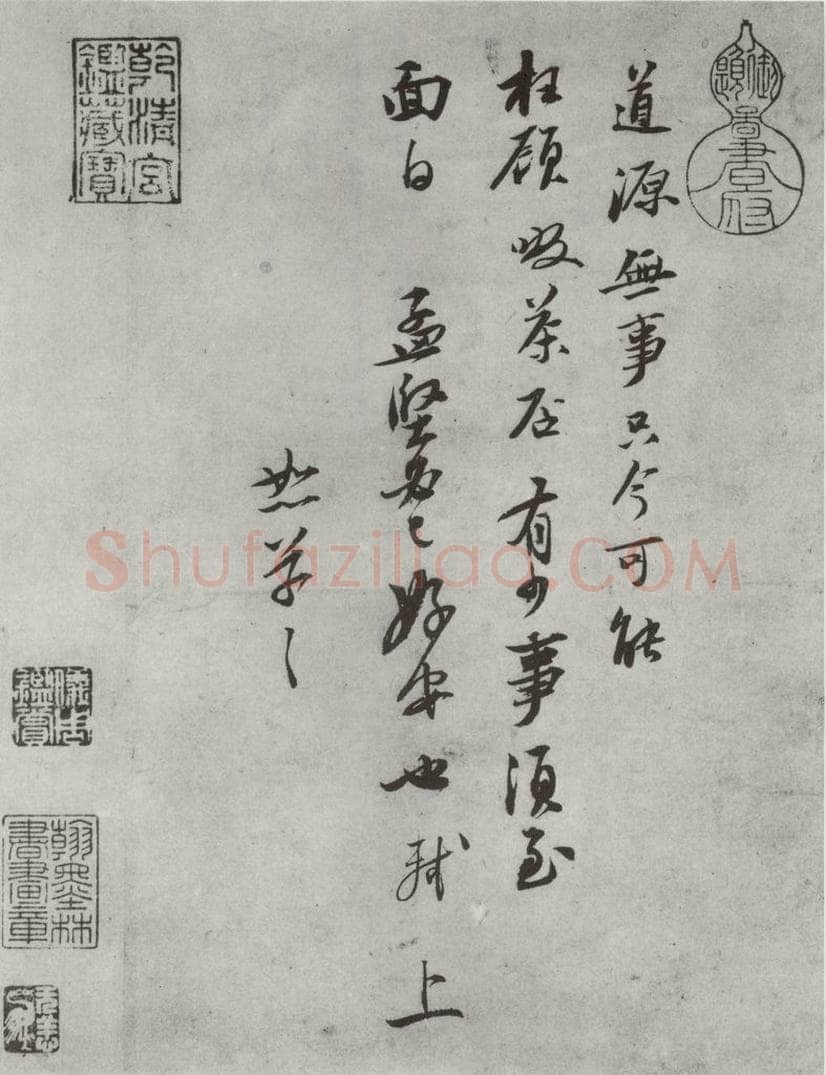 道源無事只今可能
枉顧啜茶否有少事須至
面白 孟堅必已好安也 軾 上
恕草〻
乾清宮鑑藏寶
儀周鑑賞
翰墨林書畫章
Shufaziliao.COM